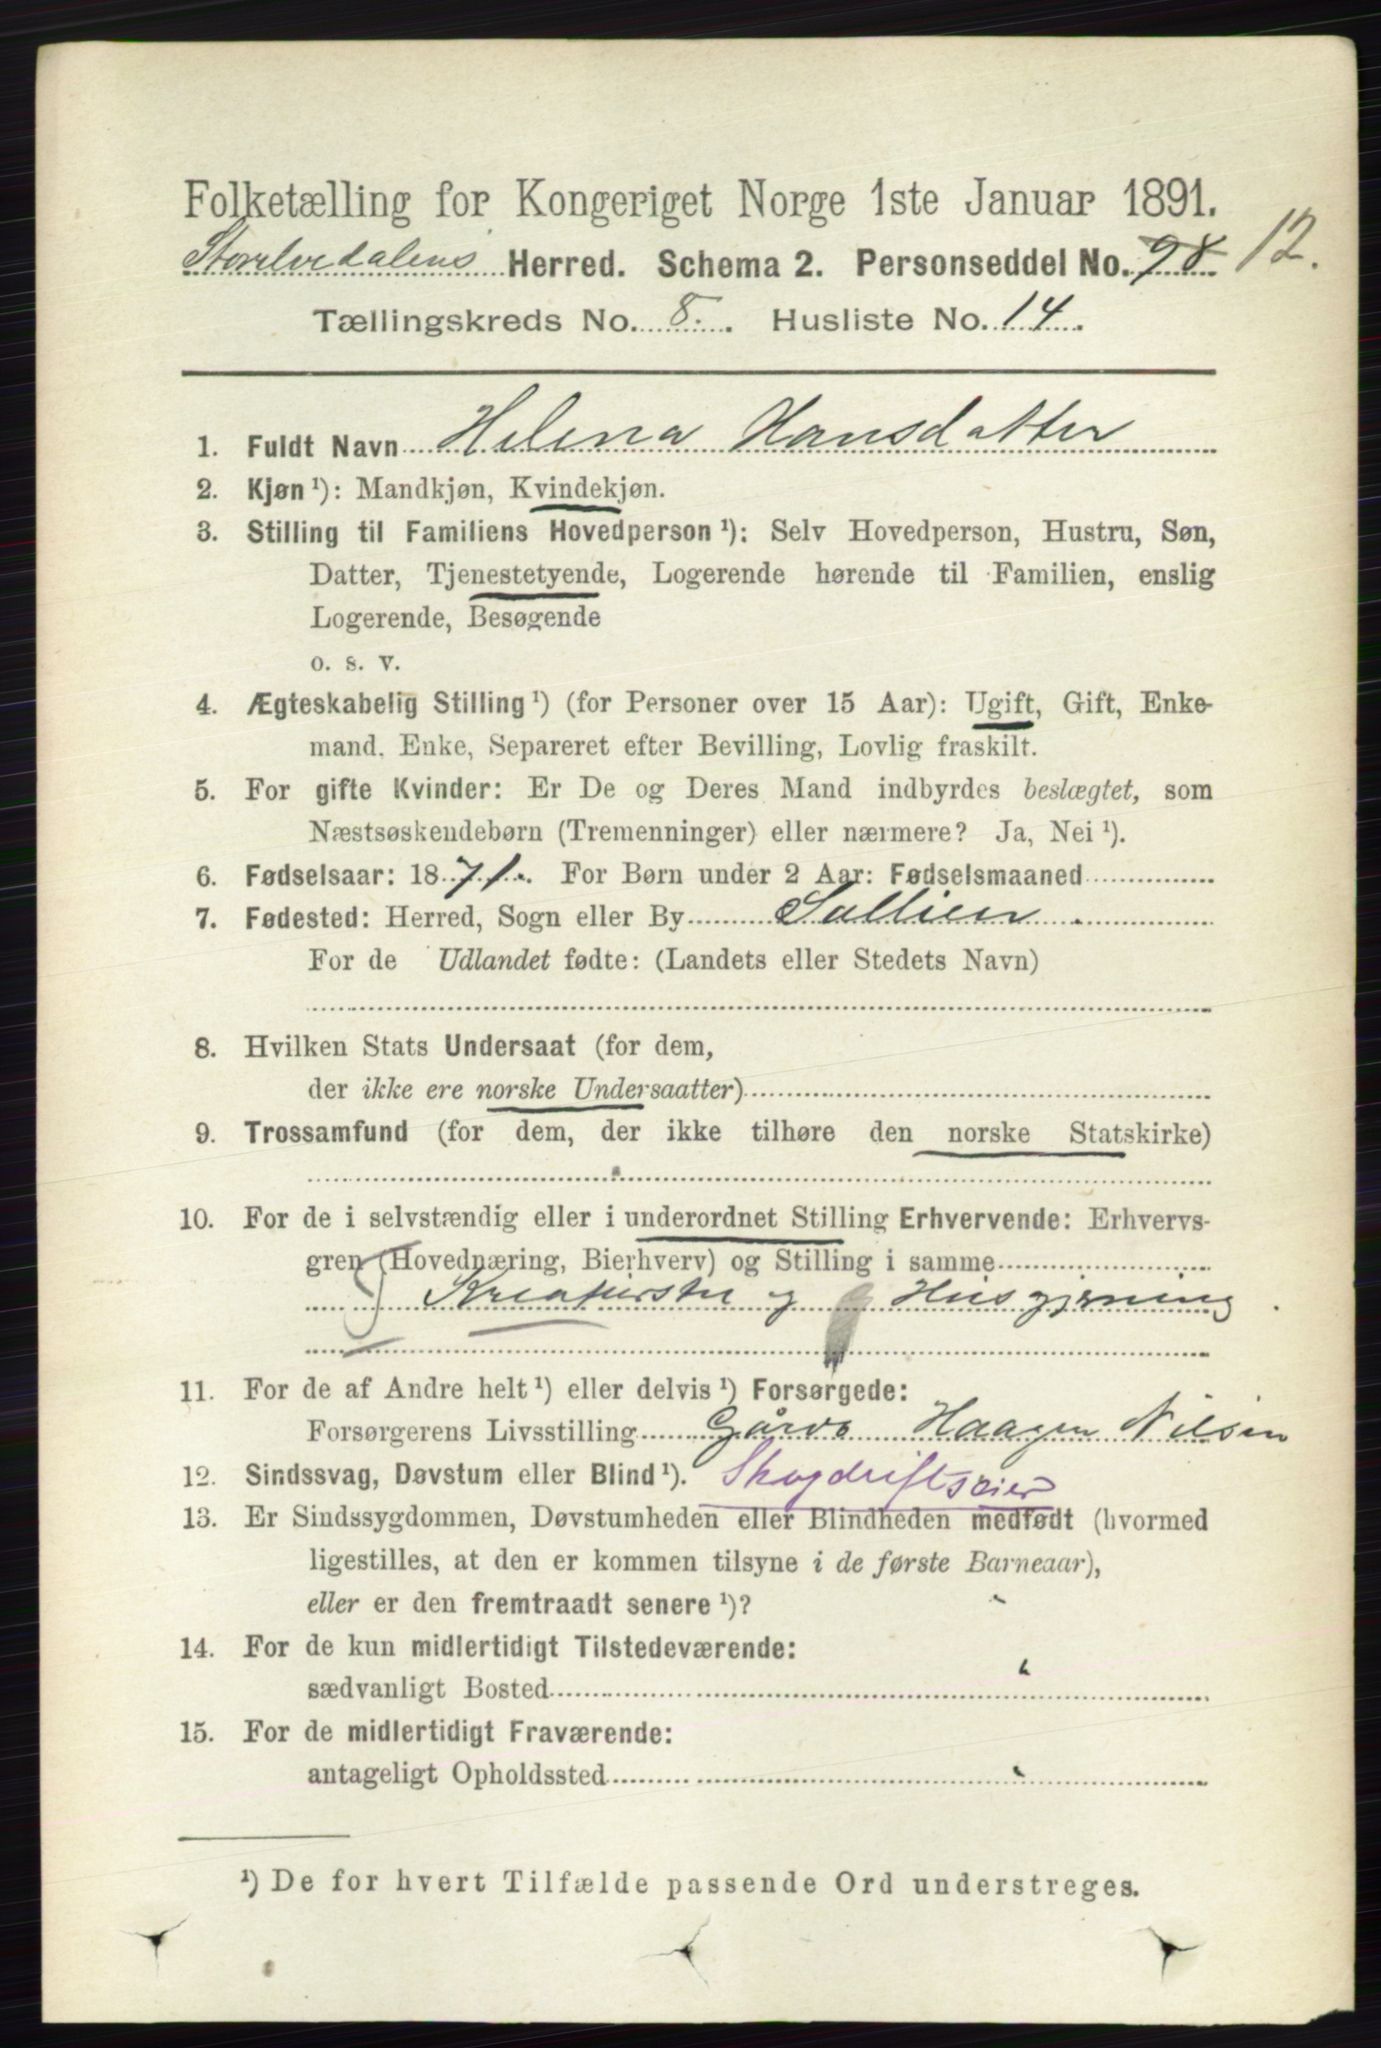 Folketælling for Kongeriget Norge 1ste Januar 1891.
Storelvedalens Herred. Schema 2. Personseddel No. 98 12.
Tællingskreds No. 8. Husliste No. 14.
1. Fuldt Navn Helena Hansdatter
2. Kjøn ¹): Mandkjøn, Kvindekjøn.
3. Stilling til Familiens Hovedperson ¹): Selv Hovedperson, Hustru, Søn,
Datter, Tjenestetyende, Logerende hørende til Familien, enslig
Logerende, Besøgende
o. s. v.
4. Ægteskabelig Stilling ¹) (for Personer over 15 Aar): Ugift, Gift, Enke-
mand, Enke, Separeret efter Bevilling, Lovlig fraskilt.
5. For gifte Kvinder: Er De og Deres Mand indbyrdes beslægtet, som
Næstsøskendebørn (Tremenninger) eller nærmere? Ja, Nei ¹).
6. Fødselsaar: 1871. For Børn under 2 Aar: Fødselsmaaned
7. Fødested: Herred, Sogn eller By Sollien.
For de Udlandet fødte: (Landets eller Stedets Navn)
8. Hvilken Stats Undersaat (for dem,
der ikke ere norske Undersaatter)
9. Trossamfund (for dem, der ikke tilhøre den norske Statskirke)
10. For de i selvstændig eller i underordnet Stilling Erhvervende: Erhvervs-
gren (Hovednæring, Bierhverv) og Stilling i samme
Kreaturstel og Husgjerning.
11. For de af Andre helt ¹) eller delvis ¹) Forsørgede:
Forsørgerens Livsstilling Gårdb Haagen Nilsen
12. Sindssvag, Døvstum eller Blind ¹). Skogdriftseier
13. Er Sindssygdommen, Døvstumheden eller Blindheden medfødt (hvormed
ligestilles, at den er kommen tilsyne i de første Barneaar),
eller er den fremtraadt senere ¹)?
14. For de kun midlertidigt Tilstedeværende:
sædvanligt Bosted
15. For de midlertidigt Fraværende:
antageligt Opholdssted
¹) De for hvert Tilfælde passende Ord understreges.